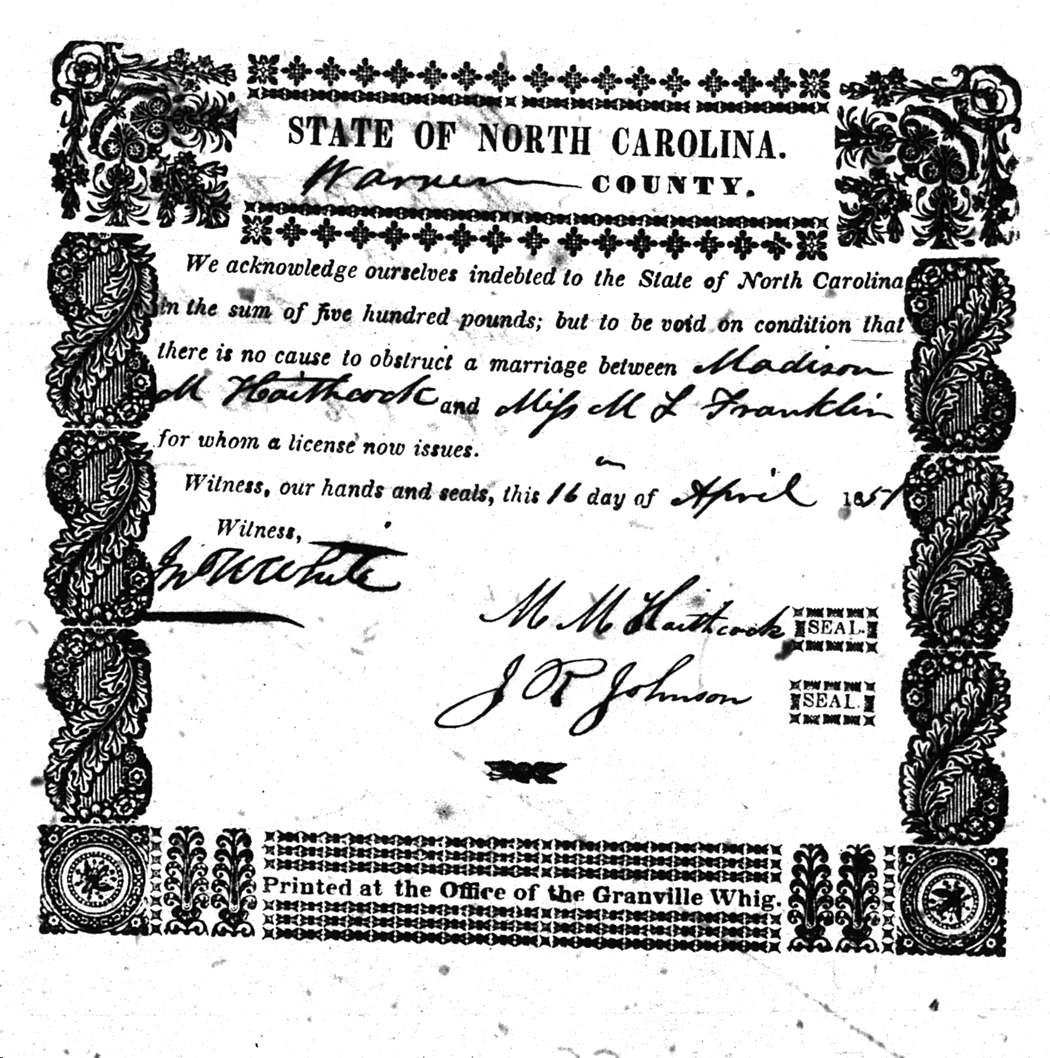 STATE OF NORTH CAROLINA.
Warren COUNTY.
We acknowledge ourselves indebted to the State of North Carolina
in the sum of five hundred pounds; but to be void on condition that
there is no cause to obstruct a marriage between Madison
M Haithcock and Miss M L Franklin
for whom a license now issues.
Witness, our hands and seals, this 16 day of April 1851
Witness,
Jno W White
M M Haithcock SEAL.
J R Johnson SEAL.
Printed at the Office of the Granville Whig.